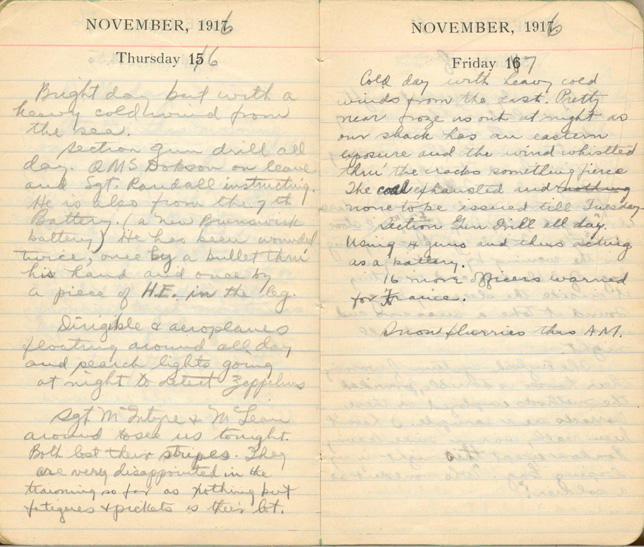 NOVEMBER, 1916
Thursday 16
Bright day but with a
heavy cold wind from
the sea.
Section gun drill all
day. QMS Dobson on leave
and Sgt. Randall instructing.
He is also from the 9th
Battery. (a New Brunswick
battery) He has been wounded
twice, once by a bullet thru'
his hand and once by
a piece of H.E. in the leg.
Dirigible & aeroplanes
floating around all day
and search lights going
at night to detect Zeppelins
Sgt McIntyre & McLean
around to see us tonight.
Both lost their stripes. They
are very disappointed in the
training so far as nothing but
fatigues & pickets is their lot.
NOVEMBER, 1916
Friday 17
Cold day with heavy cold
winds from the East. Pretty
near froze us out at night as
our shack has an eastern
exposure and the wind whistled
thru' the cracks something fierce
The coal exhausted and nothing
none to be issued till Tuesday.
Section Gun Drill all day.
Using 4 guns and thus acting
as a battery.
16 more officers warned
for France.
Snow flurries this A.M.